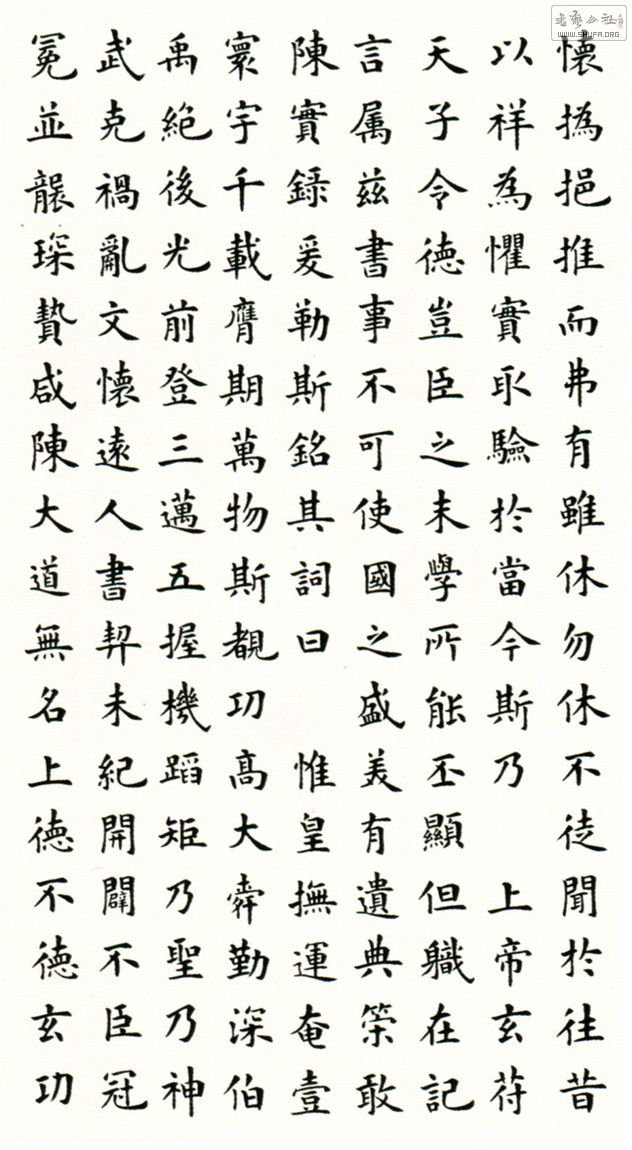 書藝公社
www.SHUFA.ORG
懷撝挹推而弗有雖休勿休不徒聞於往昔
以祥為懼實取驗於當今斯乃　上帝玄符
天子令德豈臣之末學所能丕顯但職在記
言属茲書事不可使國之盛美有遺典策敢
陳實録爰勒斯銘其詞曰　惟皇撫運奄壹
寰宇千載膺期萬物斯覩功髙大舜勤深伯
禹絕後光前登三邁五握機蹈矩乃聖乃神
武克禍亂文懷遠人書契未紀開闢不臣冠
冕並襲琛贄咸陳大道無名上德不德玄功